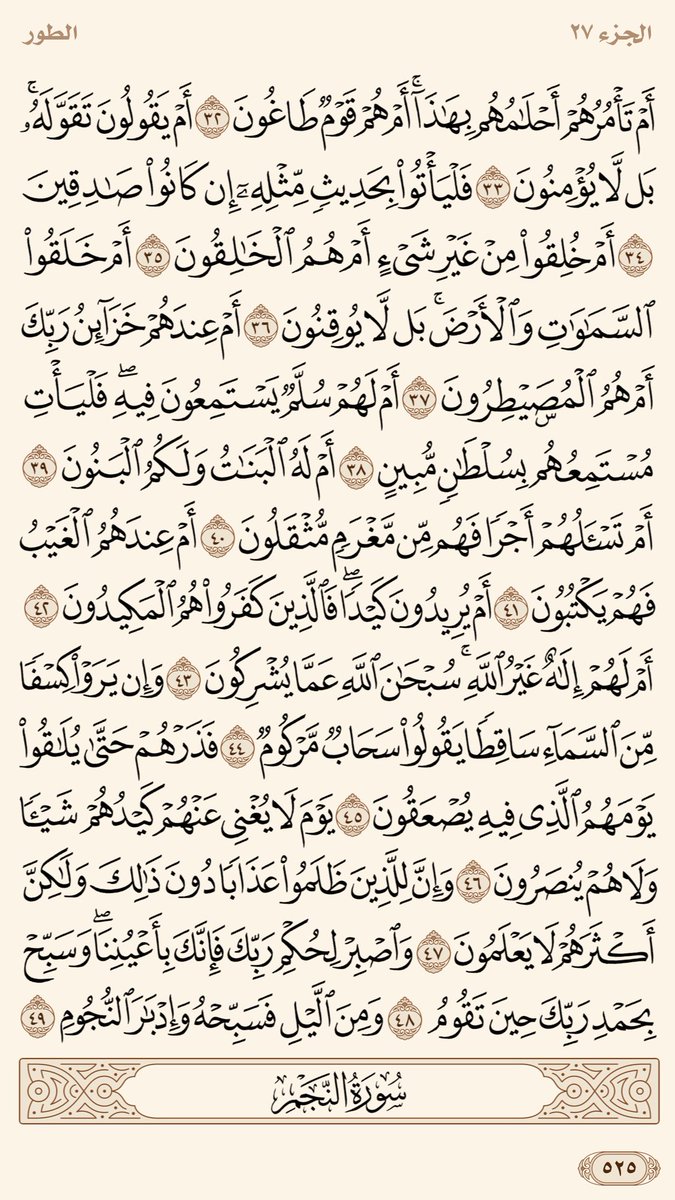 الجزء ٢٧ الطور
أَمۡ تَأۡمُرُهُمۡ أَحۡلَٰمُهُم بِهَٰذَآۚ أَمۡ هُمۡ قَوۡمٞ طَاغُونَ ٣٢ أَمۡ يَقُولُونَ تَقَوَّلَهُۥۚ
بَل لَّا يُؤۡمِنُونَ ٣٣ فَلۡيَأۡتُواْ بِحَدِيثٖ مِّثۡلِهِۦٓ إِن كَانُواْ صَٰدِقِينَ
٣٤ أَمۡ خُلِقُواْ مِنۡ غَيۡرِ شَيۡءٍ أَمۡ هُمُ ٱلۡخَٰلِقُونَ ٣٥ أَمۡ خَلَقُواْ
ٱلسَّمَٰوَٰتِ وَٱلۡأَرۡضَۚ بَل لَّا يُوقِنُونَ ٣٦ أَمۡ عِندَهُمۡ خَزَآئِنُ رَبِّكَ
أَمۡ هُمُ ٱلۡمُصَۜيۡطِرُونَ ٣٧ أَمۡ لَهُمۡ سُلَّمٞ يَسۡتَمِعُونَ فِيهِۖ فَلۡيَأۡتِ
مُسۡتَمِعُهُم بِسُلۡطَٰنٖ مُّبِينٍ ٣٨ أَمۡ لَهُ ٱلۡبَنَٰتُ وَلَكُمُ ٱلۡبَنُونَ ٣٩
أَمۡ تَسۡـَٔلُهُمۡ أَجۡرٗا فَهُم مِّن مَّغۡرَمٖ مُّثۡقَلُونَ ٤٠ أَمۡ عِندَهُمُ ٱلۡغَيۡبُ
فَهُمۡ يَكۡتُبُونَ ٤١ أَمۡ يُرِيدُونَ كَيۡدٗاۖ فَٱلَّذِينَ كَفَرُواْ هُمُ ٱلۡمَكِيدُونَ ٤٢
أَمۡ لَهُمۡ إِلَٰهٌ غَيۡرُ ٱللَّهِۚ سُبۡحَٰنَ ٱللَّهِ عَمَّا يُشۡرِكُونَ ٤٣ وَإِن يَرَوۡاْ كِسۡفٗا
مِّنَ ٱلسَّمَآءِ سَاقِطٗا يَقُولُواْ سَحَابٞ مَّرۡكُومٞ ٤٤ فَذَرۡهُمۡ حَتَّىٰ يُلَٰقُواْ
يَوۡمَهُمُ ٱلَّذِي فِيهِ يُصۡعَقُونَ ٤٥ يَوۡمَ لَا يُغۡنِي عَنۡهُمۡ كَيۡدُهُمۡ شَيۡـٔٗا
وَلَا هُمۡ يُنصَرُونَ ٤٦ وَإِنَّ لِلَّذِينَ ظَلَمُواْ عَذَابٗا دُونَ ذَٰلِكَ وَلَٰكِنَّ
أَكۡثَرَهُمۡ لَا يَعۡلَمُونَ ٤٧ وَٱصۡبِرۡ لِحُكۡمِ رَبِّكَ فَإِنَّكَ بِأَعۡيُنِنَاۖ وَسَبِّحۡ
بِحَمۡدِ رَبِّكَ حِينَ تَقُومُ ٤٨ وَمِنَ ٱلَّيۡلِ فَسَبِّحۡهُ وَإِدۡبَٰرَ ٱلنُّجُومِ ٤٩
سُورَةُ النَّجۡمِ
٥٢٥